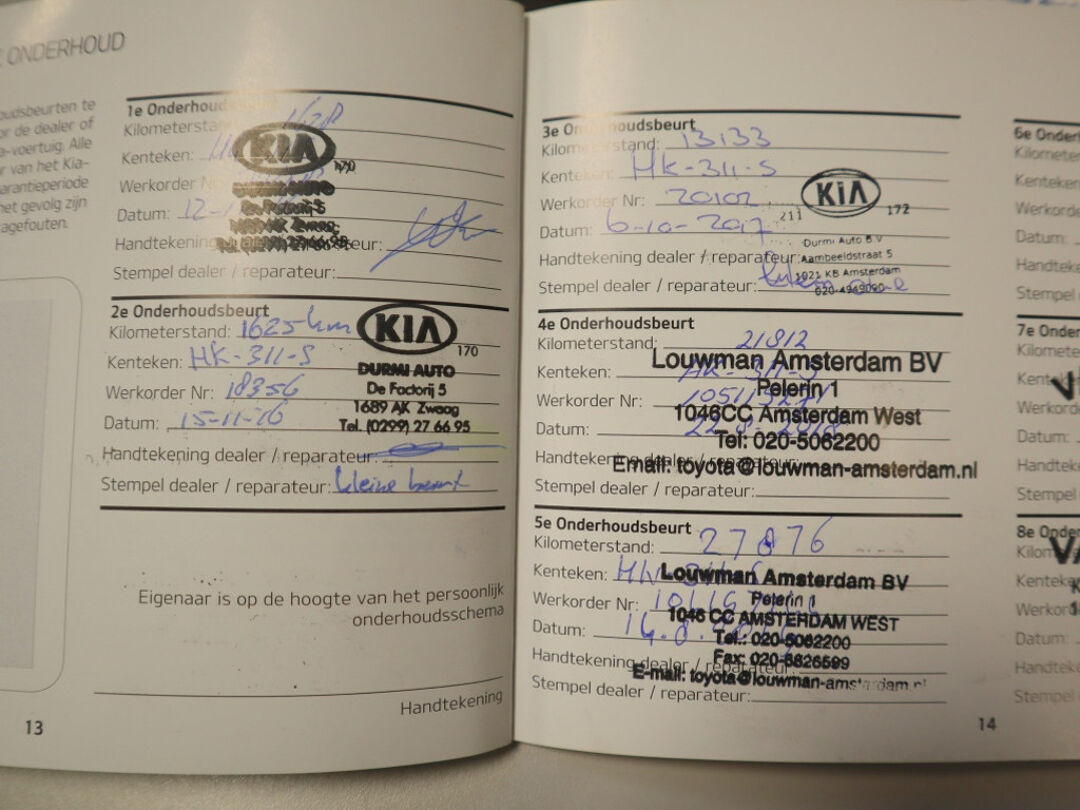 ONDERHOUD
oudsbeurten te
or de dealer of
a-voertuig. Alle
r van het Kia-
arantieperiode
het gevolg zijn
agefouten.
1e Onderhoud
Kilometersta
Kenteken:
KIA
170
Werkorder N
Datum: 12-1
De Factorij 5
Handtekening
Stempel dealer / reparateur:
2e Onderhoudsbeurt
Kilometerstand: 1625 km
KIA
170
Kenteken: HK-311-S
DURMI AUTO
De Factorij 5
Werkorder Nr: 18356
1689 AK Zwaag
Datum: 15-11-16
Tel. (0299) 27 66 95
Handtekening dealer / reparateur:
Stempel dealer / reparateur: kleine beurt
Eigenaar is op de hoogte van het persoonlijk
onderhoudsschema
Handtekening
13
3e Onderhoudsbeurt
Kilometerstand: 13133
Kenteken: HK-311-S
KIA
172
Werkorder Nr: 20102
211
Datum: 6-10-2017
Durmi Auto B V
Handtekening dealer / reparateur:
Aambeeldstraat 5
1021 KB Amsterdam
Stempel dealer / reparateur:
020-4969090
4e Onderhoudsbeurt
Kilometerstand: 21812
Louwman Amsterdam BV
Kenteken: HK-311-S
Pelerin 1
Werkorder Nr:
1046CC Amsterdam West
Datum: 22-8-2018
Tel: 020-5062200
Handtekening dealer / reparateur:
Email: toyota@louwman-amsterdam.nl
Stempel dealer / reparateur:
5e Onderhoudsbeurt
Kilometerstand: 27876
Kenteken:
Louwman Amsterdam BV
Pelerin 1
Werkorder Nr:
1046 CC AMSTERDAM WEST
Datum: 14.8
Tel.: 020-5062200
Fax: 020-6626599
Handtekening dealer / reparateur:
E-mail: toyota@louwman-amsterdam.nl
Stempel dealer / reparateur:
14
6e Onder
Kilomete
Kenteken
Werkord
Datum:
Handteke
Stempel
7e Onder
Kilomete
Kent
Werkord
Datum:
Handtek
Stempel
8e Onder
Kilom
Kenteke
Werkord
Datum:
Handtek
Stempel